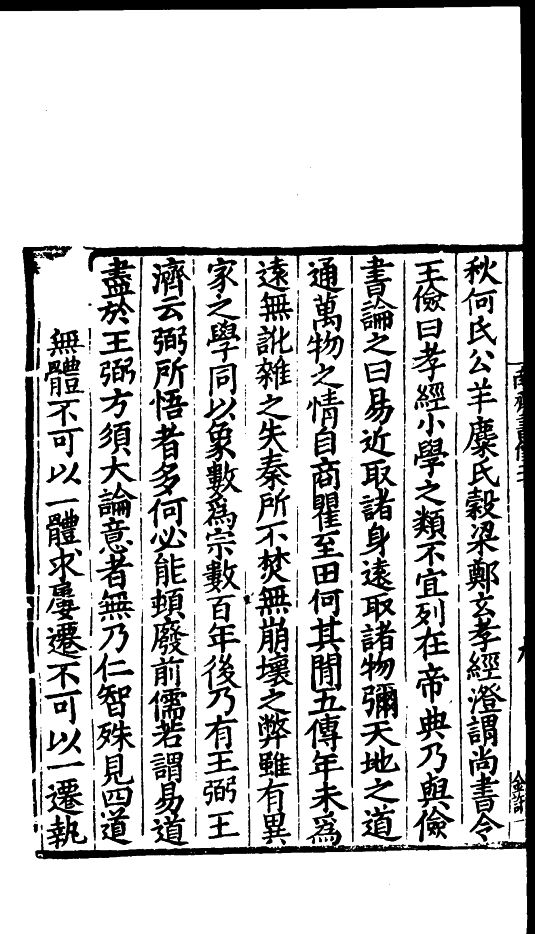 秋何氏公羊麋氏穀梁鄭玄孝經澄謂尚書令
王儉曰孝經小學之類不宜列在帝典乃與儉
書論之曰易近取諸身遠取諸物彌天地之道
通萬物之情自商瞿至田何其閒五傳年未爲
遠無訛雜之失秦所不焚無崩壞之弊雖有異
家之學同以象數爲宗數百年後乃有王弼王
濟云弼所悟者多何必能頓廢前儒若謂易道
盡於王弼方須大論意者無乃仁智殊見四道
無體不可以一體求屢遷不可以一遷執